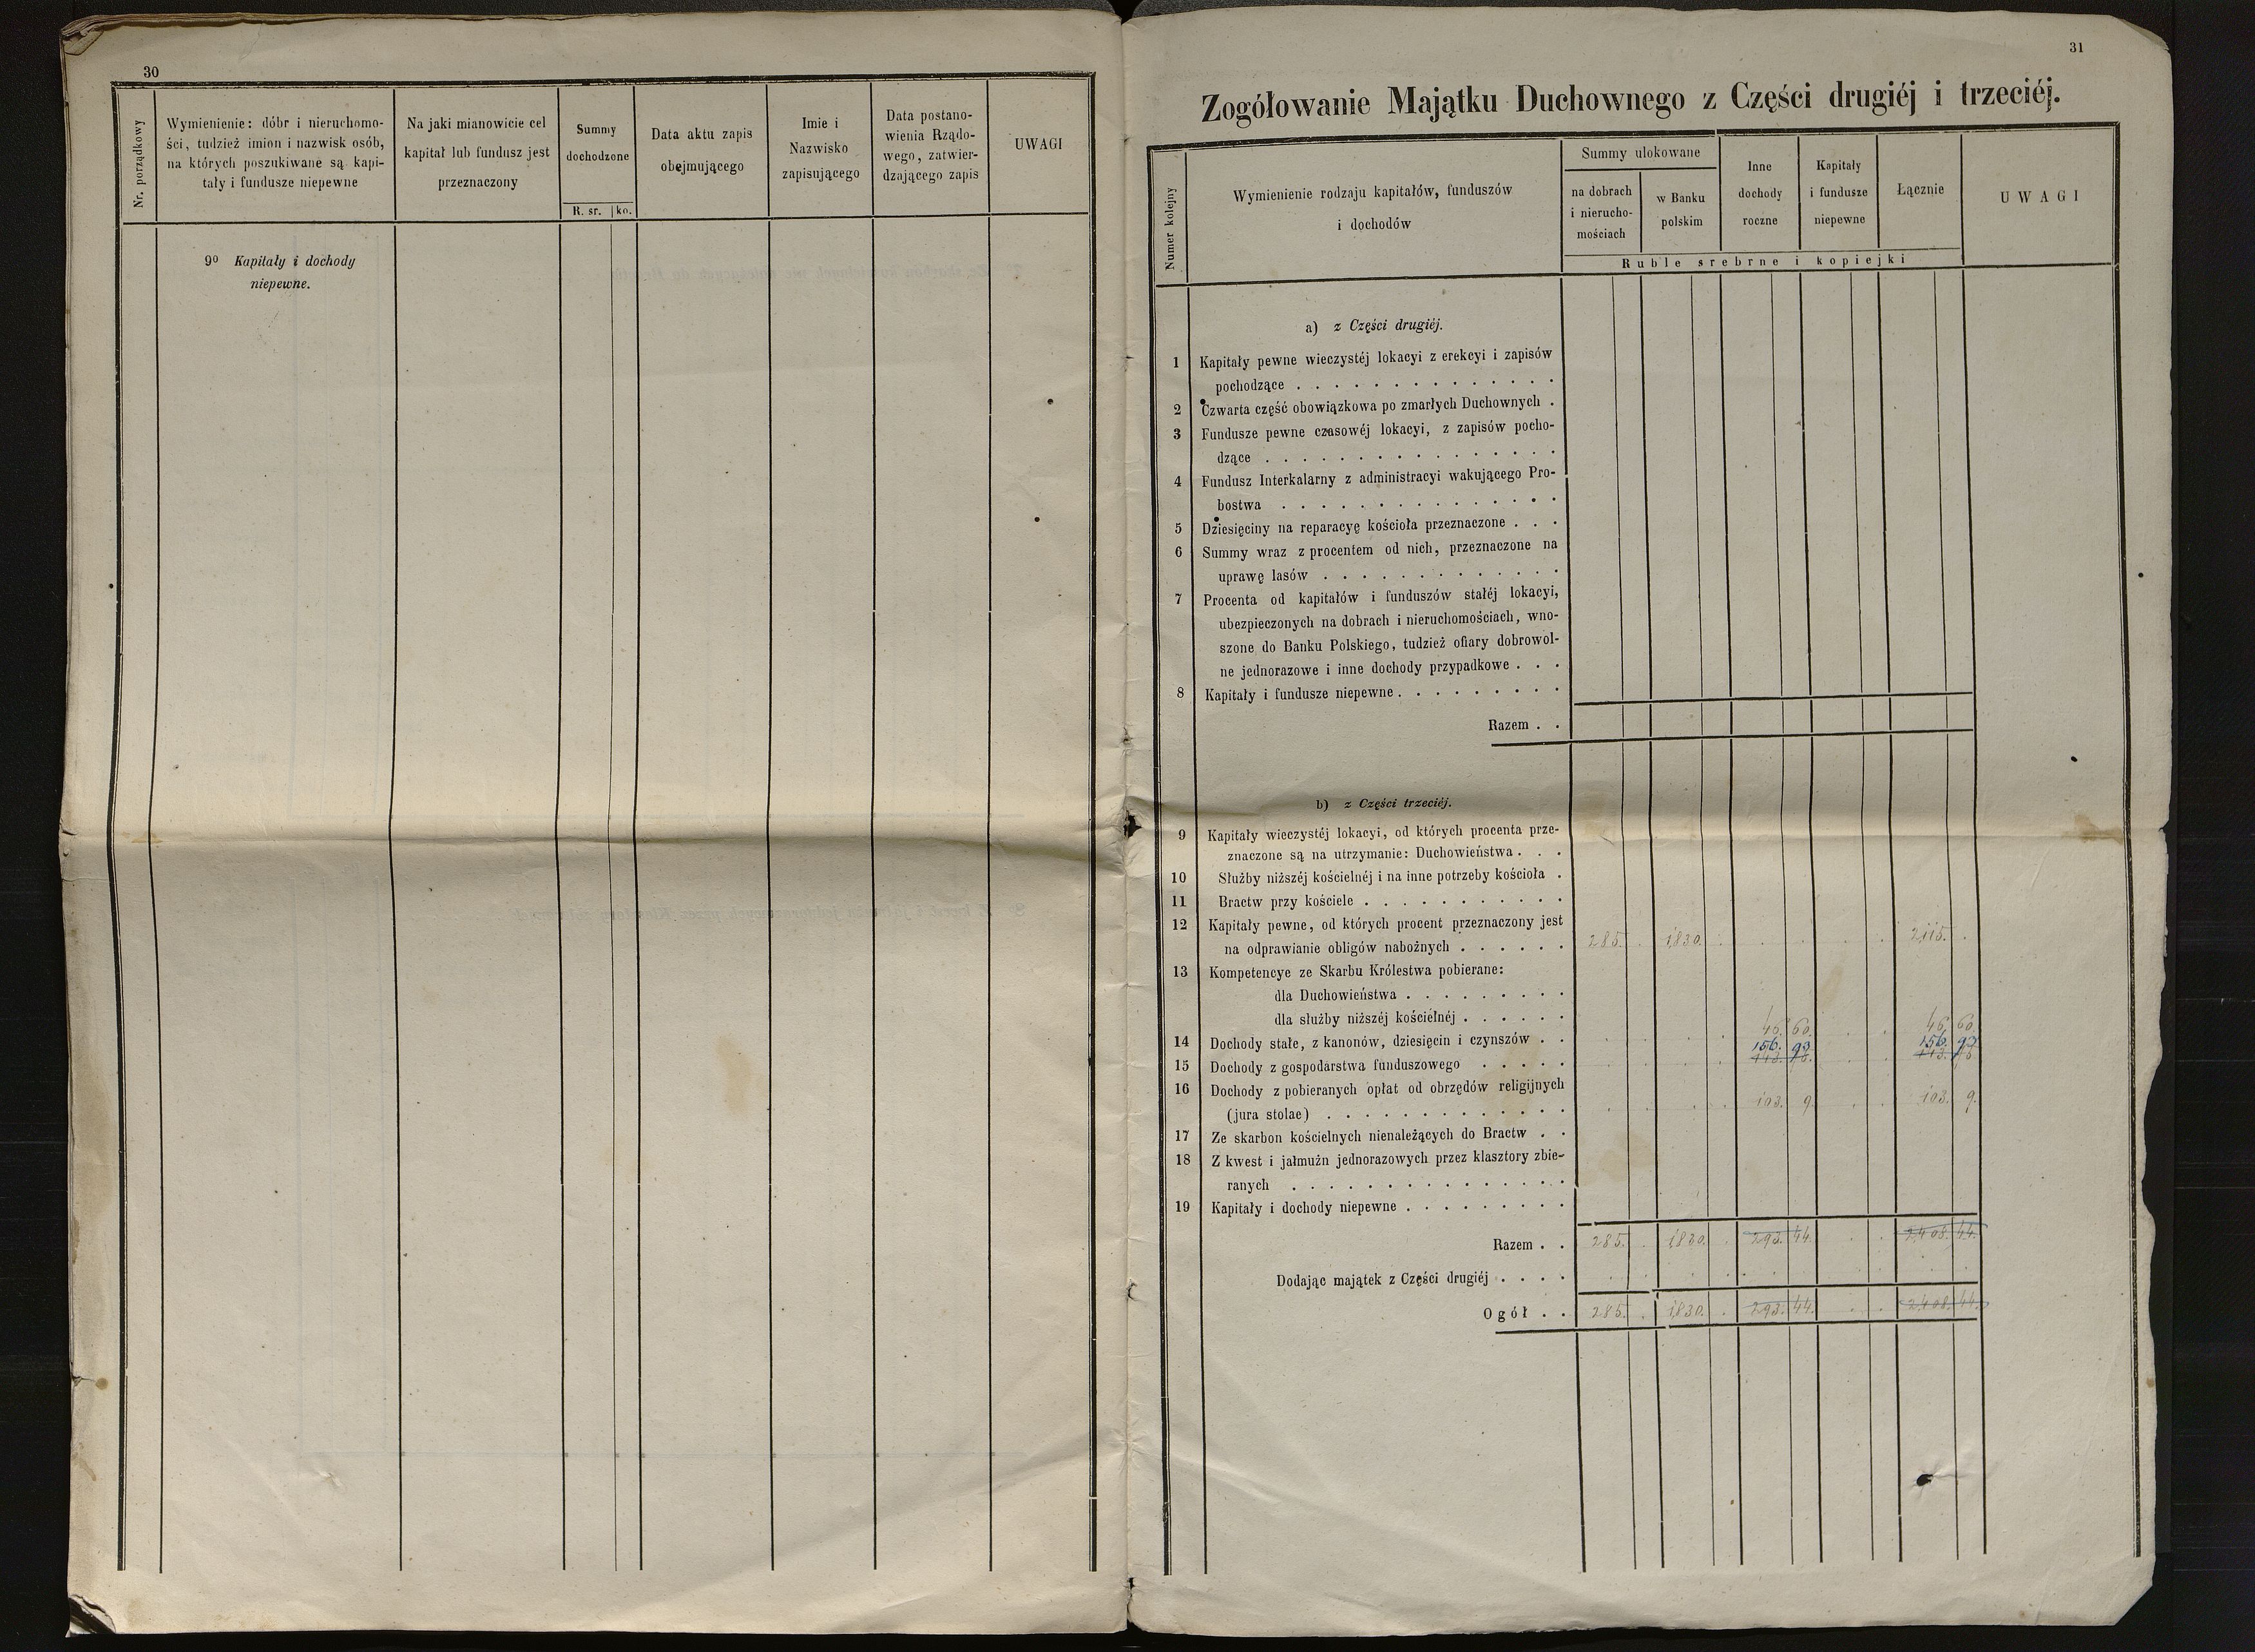 30
Nr. porządkowy
Wymienienie: dóbr i nieruchomo-
ści, tudzież imion i nazwisk osób,
na których poszukiwane są kapi-
tały i fundusze niepewne
Na jaki mianowicie cel
kapitał lub fundusz jest
przeznaczony
Summy
dochodzone
R. sr. ko.
Data aktu zapis
obejmującego
Imie i
Nazwisko
zapisującego
Data postano-
wienia Rządo-
wego, zatwier-
dzającego zapis
UWAGI
9º Kapitały i dochody
niepewne.
31
Zogółowanie Majątku Duchownego z Części drugiéj i trzeciéj.
Numer kolejny
Wymienienie rodzaju kapitałów, funduszów
i dochodów
Summy ulokowane
na dobrach
i nierucho-
mościach
w Banku
polskim
Inne
dochody
roczne
Kapitały
i fundusze
niepewne
Łącznie
UWAGI
Ruble srebrne i kopiejki
a) z Części drugiéj.
1 Kapitały pewne wieczystéj lokacyi z erekcyi i zapisów
pochodzące . . . . . . . . . . . . . .
2 Czwarta część obowiązkowa po zmarłych Duchownych .
3 Fundusze pewne czasowéj lokacyi, z zapisów pocho-
dzące . . . . . . . . . . . . . . . .
4 Fundusz Interkalarny z administracyi wakującego Pro-
bostwa . . . . . . . . . . . . . . .
5 Dziesięciny na reparacyę kościoła przeznaczone . . .
6 Summy wraz z procentem od nich, przeznaczone na
uprawę lasów . . . . . . . . . . . . .
7 Procenta od kapitałów i funduszów stałéj lokacyi,
ubezpieczonych na dobrach i nieruchomościach, wno-
szone do Banku Polskiego, tudzież ofiary dobrowol-
ne jednorazowe i inne dochody przypadkowe . . .
8 Kapitały i fundusze niepewne . . . . . . . . .
Razem . .
b) z Części trzeciéj.
9 Kapitały wieczystéj lokacyi, od których procenta prze-
znaczone są na utrzymanie: Duchowieństwa . . .
10 Służby niższéj kościelnéj i na inne potrzeby kościoła .
11 Bractw przy kościele . . . . . . . . . . .
12 Kapitały pewne, od których procent przeznaczony jest
na odprawianie obligów nabożnych . . . . . . 285. 1,830. 2,115.
13 Kompetencye ze Skarbu Królestwa pobierane:
dla Duchowieństwa . . . . . . . . .
dla służby niższéj kościelnéj . . . . . .
14 Dochody stałe, z kanonów, dziesięcin i czynszów . . 46. 60. 46. 60.
156. 93 156. 93
15 Dochody z gospodarstwa funduszowego . . . . .
16 Dochody z pobieranych opłat od obrzędów religijnych
(jura stolae) . . . . . . . . . . . . . 103. 9. 103. 9.
17 Ze skarbon kościelnych nienależących do Bractw . .
18 Z kwest i jałmużn jednorazowych przez klasztory zbie-
ranych . . . . . . . . . . . . . . .
19 Kapitały i dochody niepewne . . . . . . . . .
Razem . . 285. 1,830. 293. 44. 2,408. 44.
Dodając majątek z Części drugiéj . . . .
Ogół . . 285. 1,830. 293. 44. 2,408. 44.